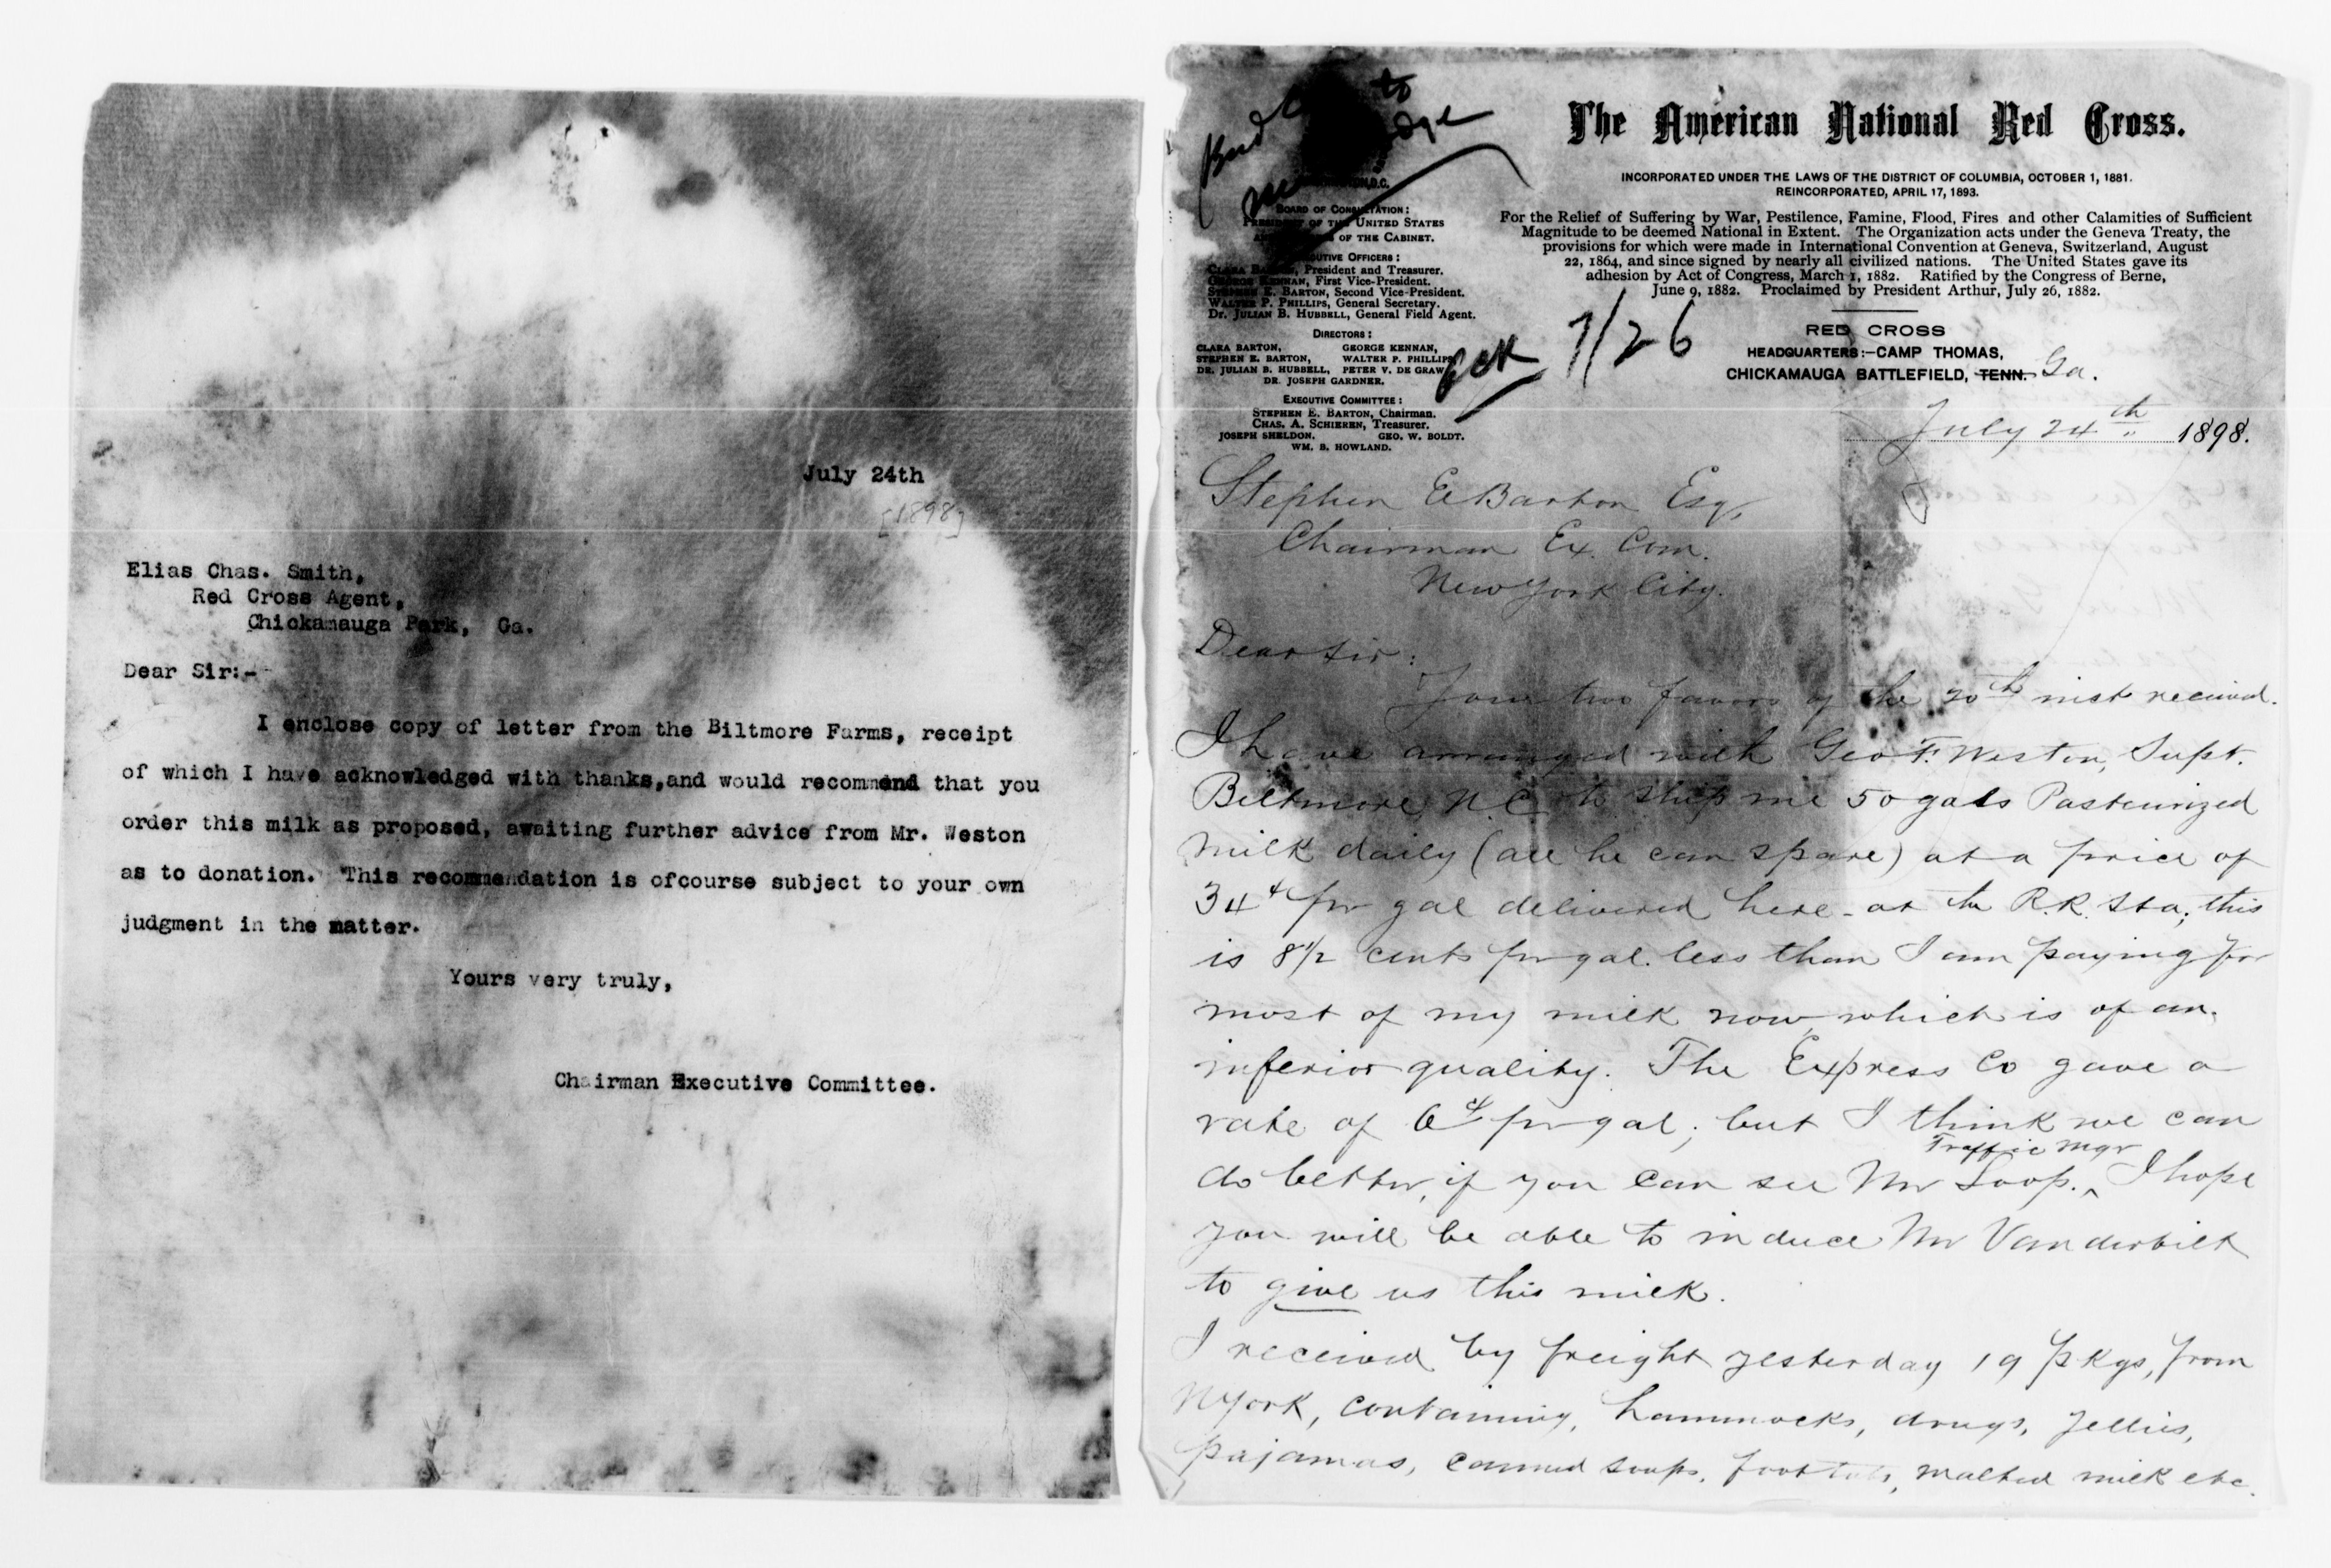 July 24th
[1898]
Elias Chas. Smith,
Red Cross Agent,
Chickamauga Park, Ga.
Dear Sir:-
I enclose copy of letter from the Biltmore Farms, receipt
of which I have acknowledged with thanks,and would recommend that you
order this milk as proposed, awaiting further advice from Mr. Weston
as to donation. This recommendation is ofcourse subject to your own
judgment in the matter.
Yours very truly,
Chairman Executive Committee.
to
D.C.
Board of Consultation:
President of the United States
of the Cabinet.
Executive Officers:
Clara Barton, President and Treasurer.
George Kennan, First Vice-President.
Stephen E. Barton, Second Vice-President.
Walter P. Phillips, General Secretary.
Dr. Julian B. Hubbell, General Field Agent.
Directors:
CLARA BARTON, GEORGE KENNAN,
STEPHEN E. BARTON, WALTER P. PHILLIPS
DR. JULIAN B. HUBBELL, PETER V. DE GRAW
DR. JOSEPH GARDNER.
Executive Committee:
Stephen E. Barton, Chairman.
Chas. A. Schieren, Treasurer.
JOSEPH SHELDON. GEO. W. BOLDT.
WM. B. HOWLAND.
Ack 7/26
The American National Red Cross.
INCORPORATED UNDER THE LAWS OF THE DISTRICT OF COLUMBIA, OCTOBER 1, 1881.
REINCORPORATED, APRIL 17, 1893.
For the Relief of Suffering by War, Pestilence, Famine, Flood, Fires and other Calamities of Sufficient
Magnitude to be deemed National in Extent. The Organization acts under the Geneva Treaty, the
provisions for which were made in International Convention at Geneva, Switzerland, August
22, 1864, and since signed by nearly all civilized nations. The United States gave its
adhesion by Act of Congress, March 1, 1882. Ratified by the Congress of Berne,
June 9, 1882. Proclaimed by President Arthur, July 26, 1882.
RED CROSS
HEADQUARTERS:—CAMP THOMAS,
CHICKAMAUGA BATTLEFIELD, TENN. Ga.
July 24th 1898.
Stephen E Barton Esq,
Chairman Ex. Com.
New York City.
Dear Sir:
Your two favors of the 20th inst received.
I have arranged with Geo F. Weston, Supt.
Biltmore, N.C. to ship me 50 gals Pasteurized
milk daily (all he can spare) at a price of
34¢ pr gal delivered here - at the R.R. Sta; this
is 8½ cents pr gal. less than I am paying for
most of my milk now, which is of an
inferior quality. The Express Co gave a
rate of 6¢ pr gal; but I think we can
do better, if you can see Mr Loop. ^ Traffic Mgr I hope
you will be able to induce Mr Vanderbilt
to give us this milk.
I received by freight yesterday 19 pkgs, from
N York, containing, hammocks, drugs, jellies,
pajamas, canned soups, foot tubs, malted milk etc.